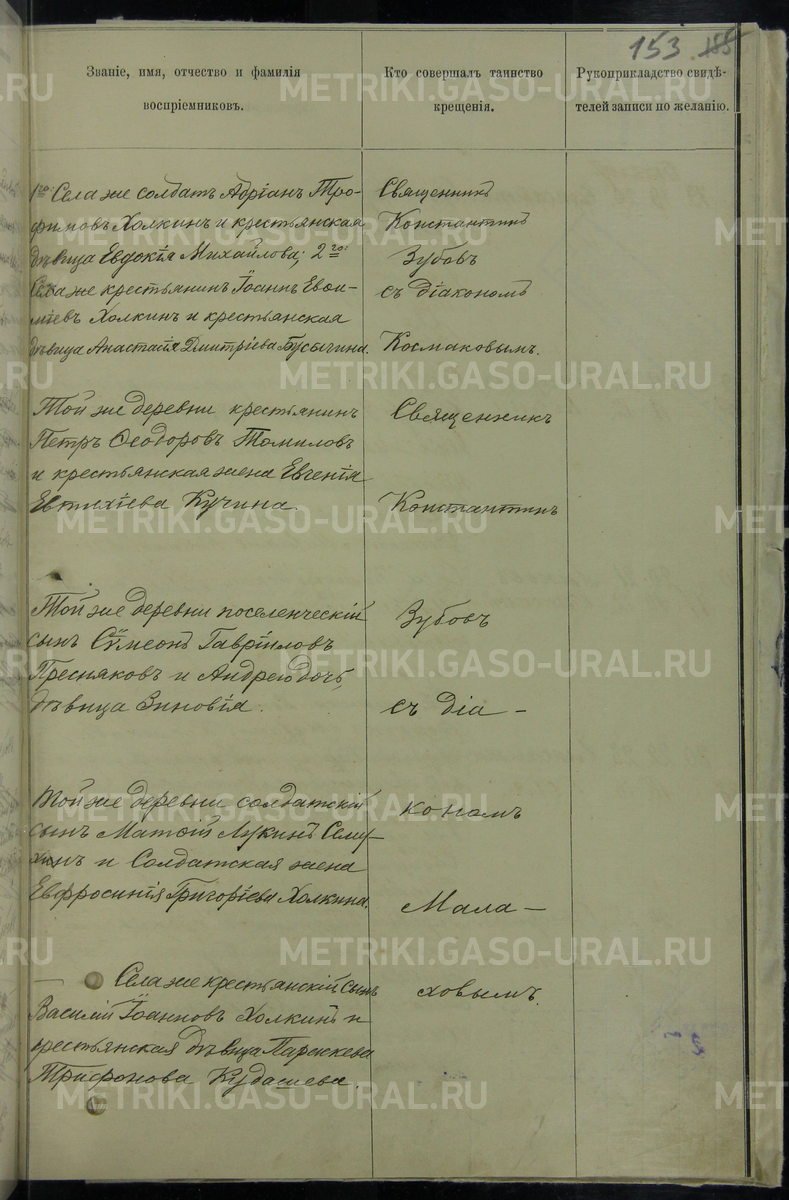 153.
Званіе, имя, отчество и фамилія
воспріемниковъ.
Кто совершалъ таинство
крещенія.
Рукоприкладство свидѣ-
телей записи по желанію.
1го: Села же солдатъ Адріанъ Тро-
фимовъ Холкинъ и крестьянская
дѣвица Евдокія Михайлова; 2го:
Села же крестьянинъ Іоаннъ Евѳи-
міевъ Холкинъ и крестьянская
дѣвица Анастасія Дмитріева Бусыгина.
Священникъ
Константинъ
Зубовъ
съ діакономъ
Космаковымъ.
Той же деревни крестьянинъ
Петръ Ѳеодоровъ Томиловъ
и крестьянская жена Евгенія
Евтихіева Кучина.
Священникъ
Константинъ
Той же деревни поселенческій
сынъ Сѵмеонъ Гавріиловъ
Пресняковъ и Андрею дочь,
дѣвица Зиновія.
Зубовъ
съ діа-
Той же деревни солдатскій
сынъ Матѳій Лукинъ Сему-
хинъ и Солдатская жена
Евфросинія Григоріева Холкина.
кономъ
Мала-
Села же крестьянскій сынъ
Василій Іоанновъ Холкинъ и
крестьянская дѣвица Параскева
Трифонова Кудашева.
ховымъ.
METRIKI.GASO-URAL.RU